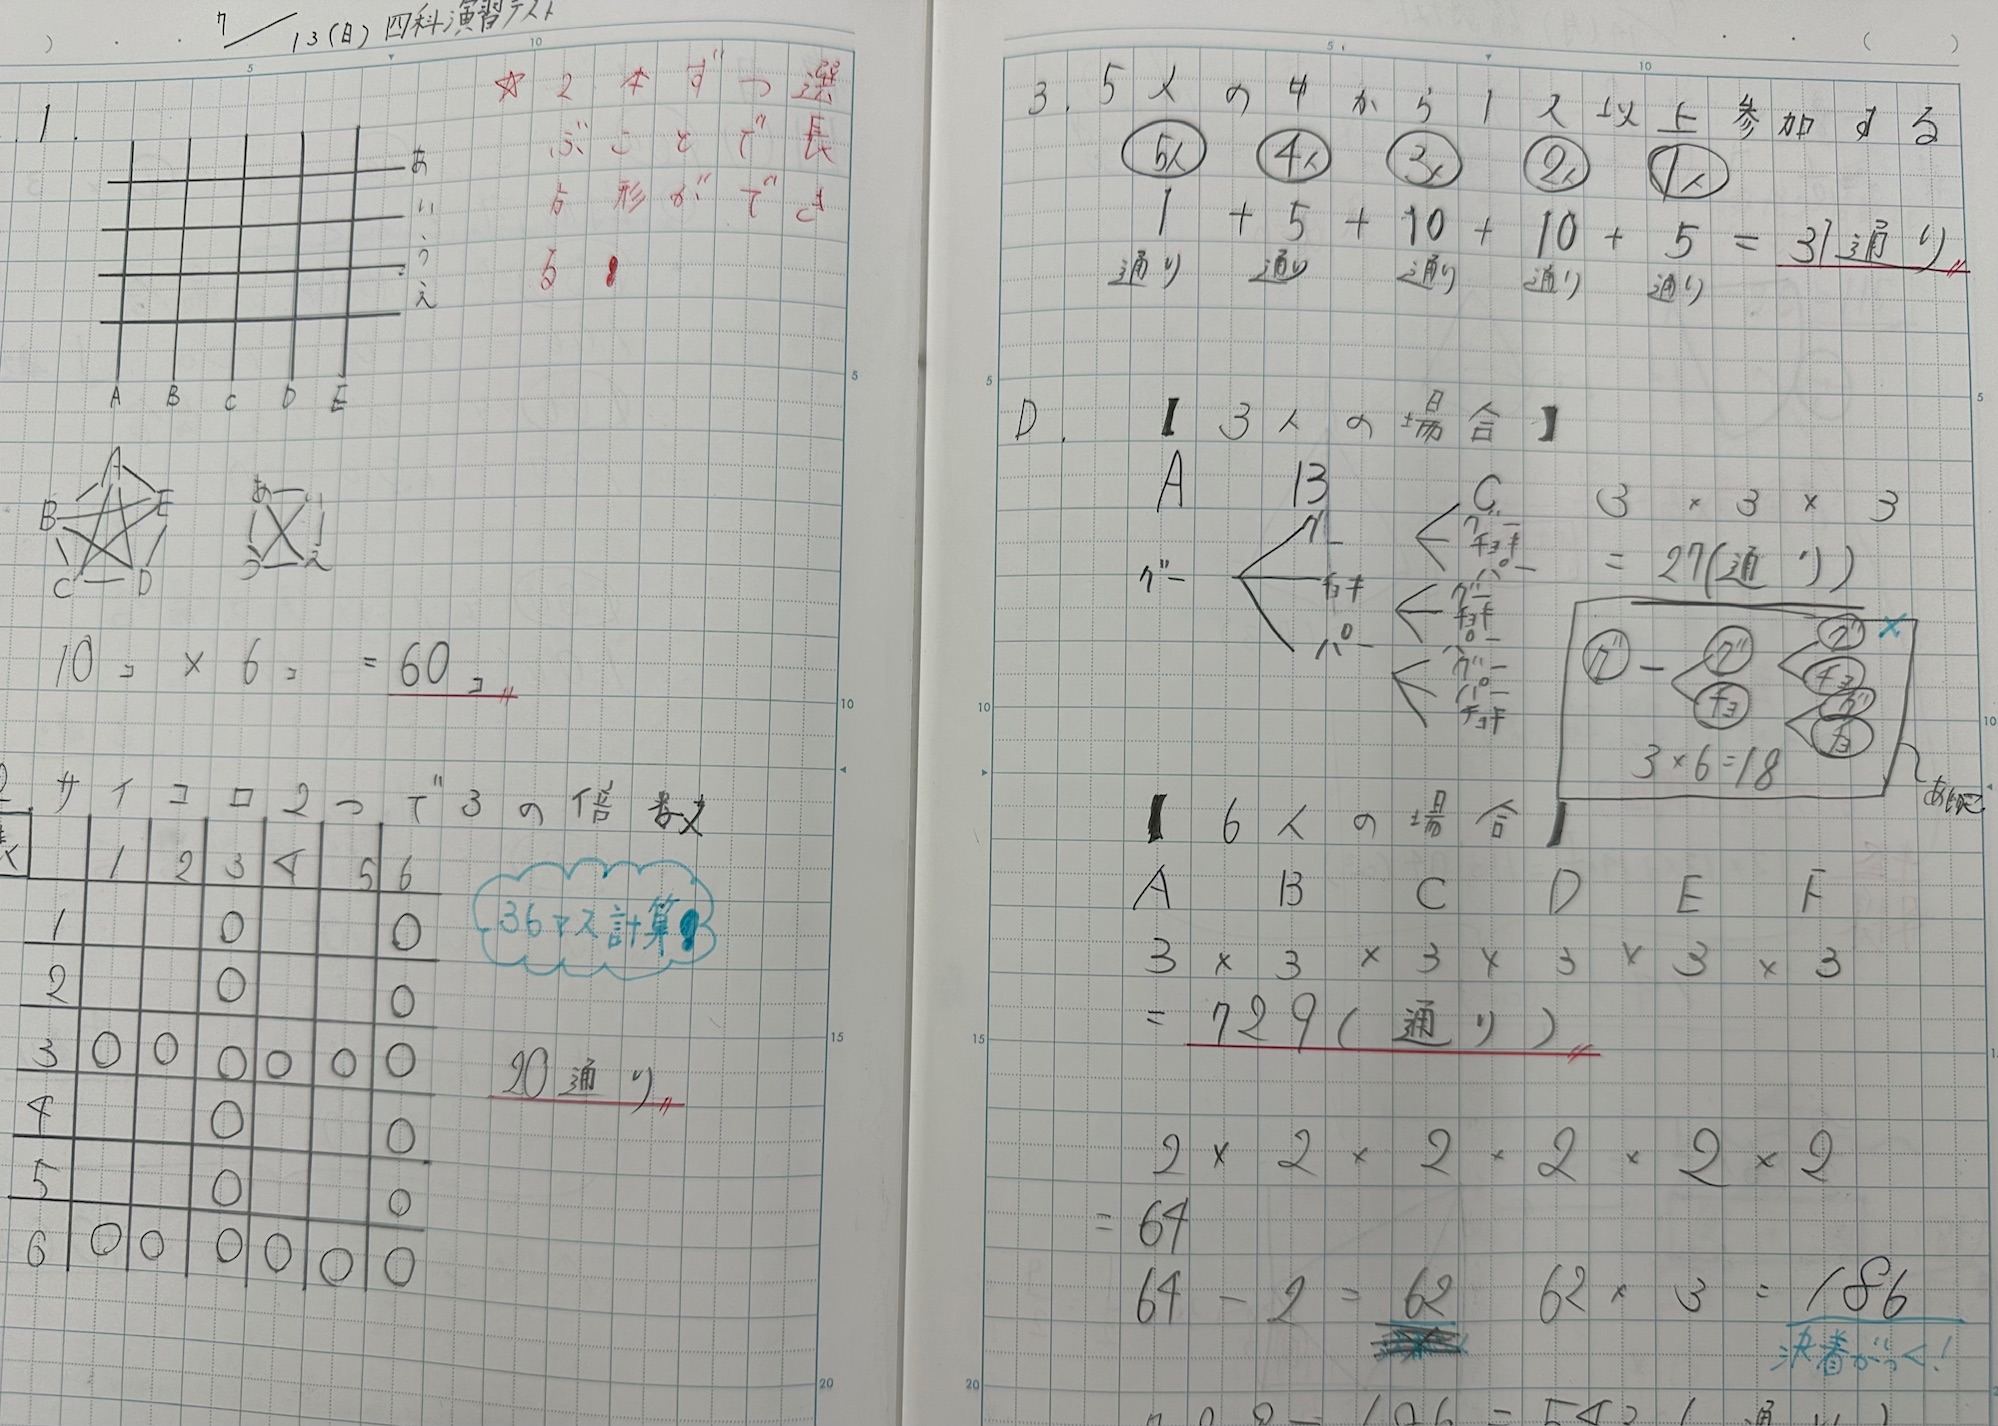 7/13(日) 四科演習テスト
1.
あ
い
う
え
A B C D E
☆2本ずつ選
ぶことで長
方形ができ
る!
A
B E
C D
あ い
う え
10コ × 6コ = 60コ
2. サイコロ2つで3の倍数
1 2 3 4 5 6
1 ○ ○
2 ○ ○
3 ○ ○ ○ ○ ○ ○
4 ○ ○
5 ○ ○
6 ○ ○ ○ ○ ○ ○
36マス計算!
20通り
3. 5人の中から1人以上参加する
5人 4人 3人 2人 1人
1 + 5 + 10 + 10 + 5 = 31通り
通り 通り 通り 通り 通り
D. 【3人の場合】
A B C
グー
グー
チョキ
パー
グー
チョキ
パー
グー
チョキ
パー
グー
パー
チョキ
3 × 3 × 3
= 27(通り)
グ グ グ
チョ
チョ グ
チョ
×
3×6=18
あいこ
【6人の場合】
A B C D E F
3 × 3 × 3 × 3 × 3 × 3
= 729(通り)
2 × 2 × 2 × 2 × 2 × 2
= 64
64 - 2 = 62 62 × 3 = 186
決着がつく!
729-186=543(通り)